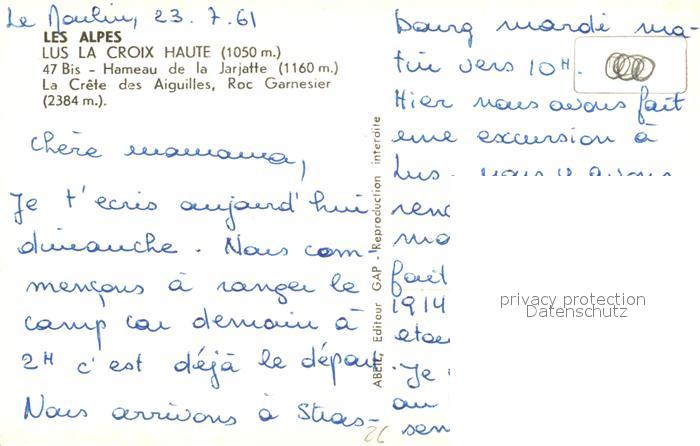 Le Moulin, 23.7.61
LES ALPES
LUS LA CROIX HAUTE (1050 m.)
47 Bis - Hameau de la Jarjatte (1160 m.)
La Crête des Aiguilles, Roc Garnesier
(2384 m.).
Chère mamama,
Je t'écris aujourd'hui
dimanche. Nous com-
mençons à ranger le
camp car demain à
2H c'est déjà le départ
Nous arrivons à Stras-
ABEIL, Editeur GAP - Reproduction interdite
bourg mardi ma-
tin vers 10H.
Hier nous avons fait
une excursion à
Lus. nous y avons
renc
mo
fait
1914
etaı
. Je
au
sen
privacy protection
Datenschutz
26